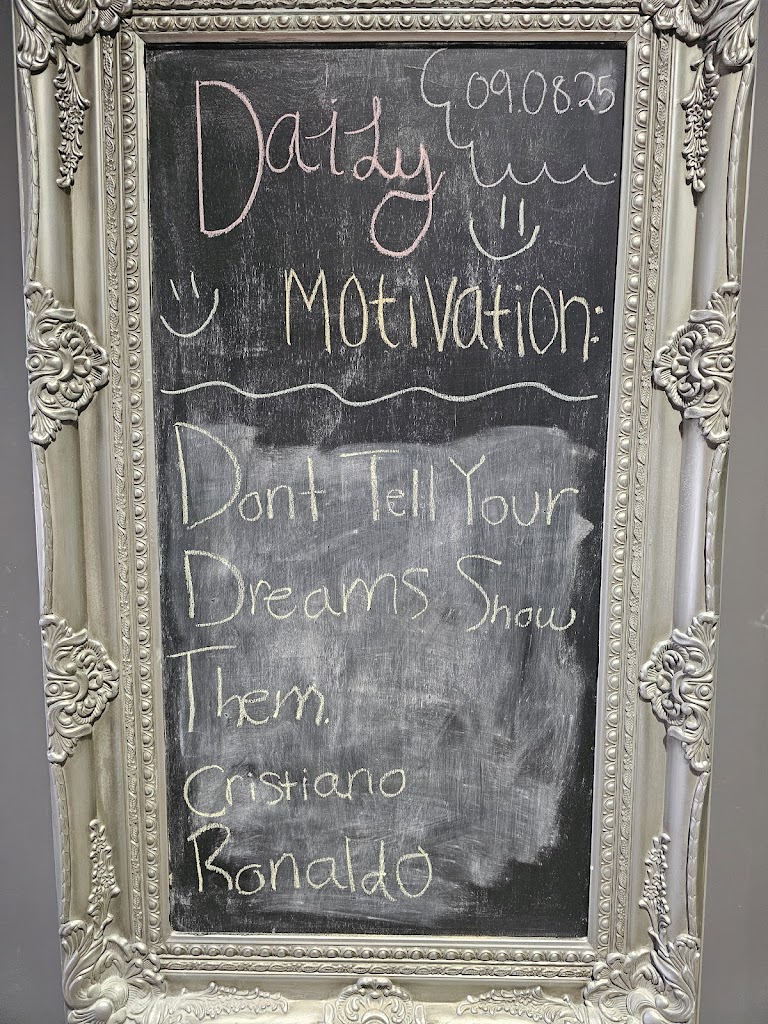 09.08.25
Daily
Motivation:
Dont Tell Your
Dreams Show
Them.
Cristiano
Ronaldo